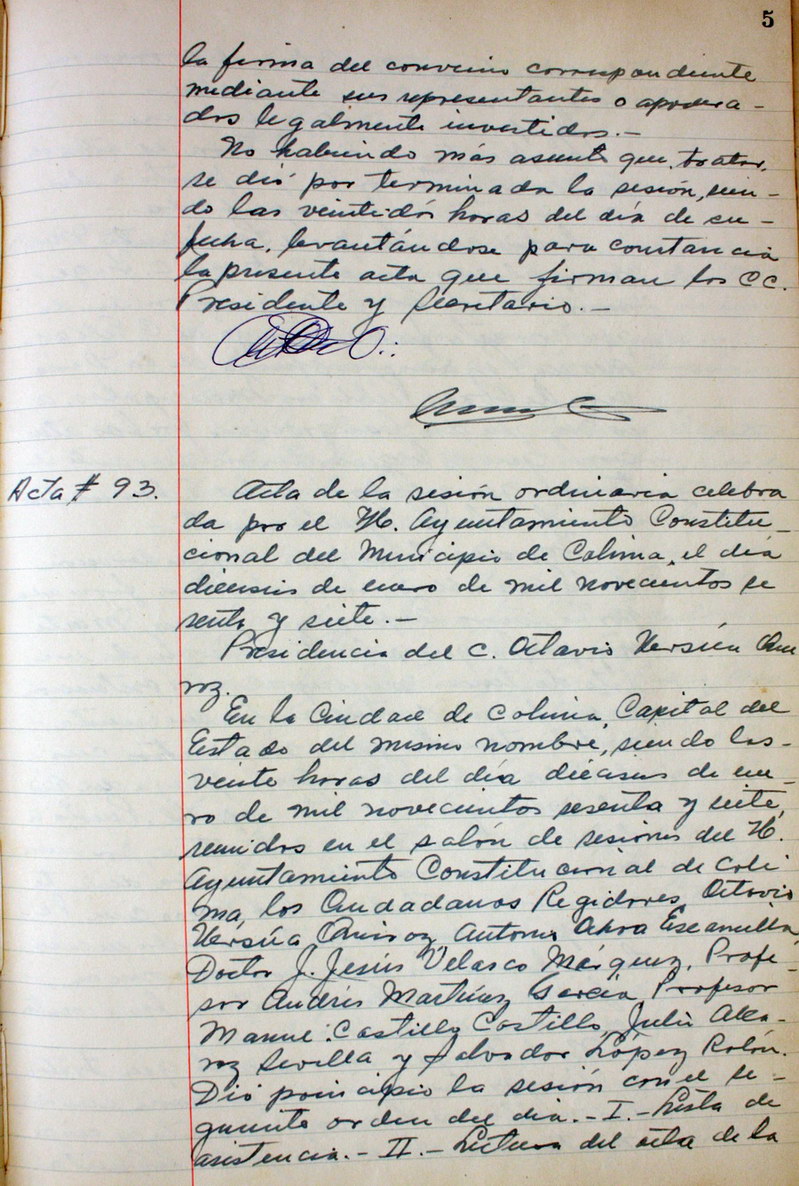 5
la firma del convenio correspondiente
mediante sus representantes o apodera-
dos legalmente investidos.-
No habiendo más asunto que tratar,
se dió por terminada la sesión, sien-
do las veintidós horas del día de su
fecha, levantándose para constancia
la presente acta que firman los CC.
Presidente y Secretario.-
Acta # 93.
Acta de la sesión ordinaria celebra
da por el H. Ayuntamiento Constitu-
cional del Municipio de Colima, el día
dieciseis de enero de mil novecientos se
senta y siete.-
Presidencia del C. Octavio Versúa Qui
roz.
En la Ciudad de Colima, Capital del
Estado del mismo nombre, siendo las-
veinte horas del día dieciseis de ene-
ro de mil novecientos sesenta y siete,
reunidos en el salón de sesiones del H.
Ayuntamiento Constitucional de Coli
ma, los Ciudadanos Regidores, Octavio
Versúa Quiroz, Antonio Escamilla,
Doctor J. Jesús Velasco Márquez, Profe-
sor Andrés Martínez García, Profesor
Manuel Castillo Castillo, Julio Alca-
raz Sevilla y Salvador López Rolón.
Dió principio la sesión con el si-
guiente orden del día.- I.- Lista de
asistencia.- II.- Lectura del acta de la